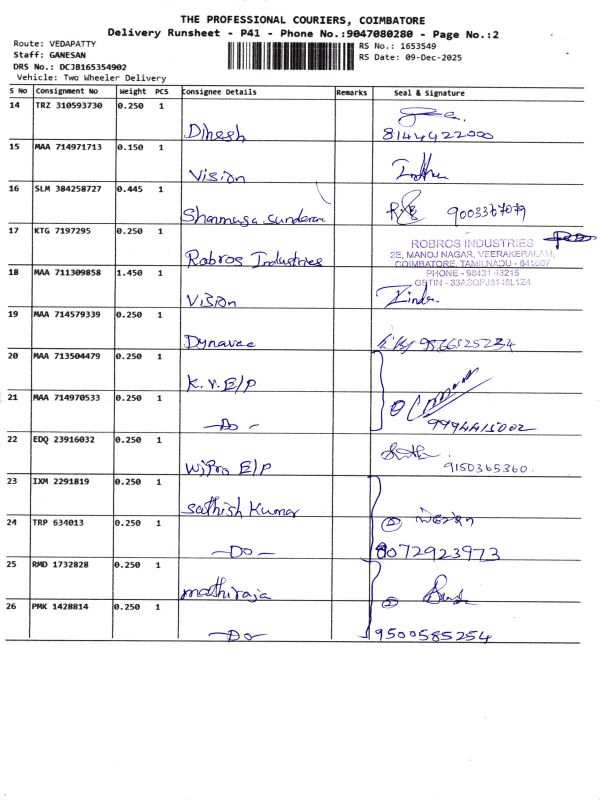 THE PROFESSIONAL COURIERS, COIMBATORE
Delivery Runsheet - P41 - Phone No.:9047080280 - Page No.:2
Route: VEDAPATTY
Staff: GANESAN
DRS No.: DCJB165354902
Vehicle: Two Wheeler Delivery
RS No.: 1653549
RS Date: 09-Dec-2025
S No Consignment No Weight PCS Consignee Details Remarks Seal & Signature
14 TRZ 310593730 0.250 1
Dinesh 8144922000
15 MAA 714971713 0.150 1
Vision
16 SLM 384258727 0.445 1
Shanmuga Sundaram 9003367079
17 KTG 7197295 0.250 1
Robros Industries
ROBROS INDUSTRIES
2E, MANOJ NAGAR, VEERAKERALAM,
COIMBATORE, TAMILNADU - 641007
PHONE - 98431 43215
GSTIN - 33ASQPJ8148L1Z4
18 MAA 711309858 1.450 1
Vision
19 MAA 714579339 0.250 1
Dynavac 9566525234
20 MAA 713504479 0.250 1
K.V. E/P
21 MAA 714970533 0.250 1
-Do- 9994415002
22 EDQ 23916032 0.250 1
Wipro E/P 9150365360.
23 IXM 2291819 0.250 1
Sathish Kumar
24 TRP 634013 0.250 1
-Do- 8072923973
25 RMD 1732828 0.250 1
mathiraja
26 PMK 1428814 0.250 1
-Do- 9500585254